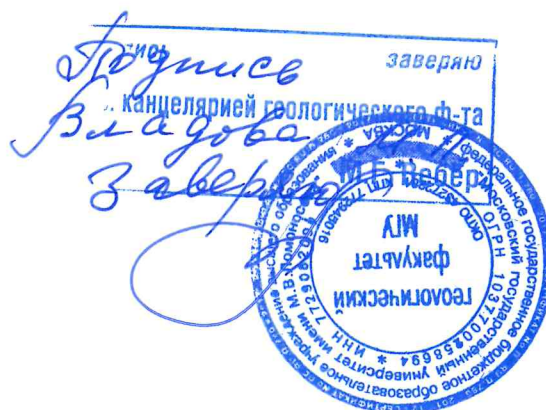 Подпись
заверяю
канцелярией геологического ф-та
Владова
М.Г. Вебер
Заверяю
* МОСКВА *
федеральное государственное бюджетное образовательное учреждение высшего образования
Московский государственный университет имени М.В.Ломоносова
ОГРН 1037700258694 * ИНН 7729082090 *
КПП 772945016
ОКПО
ГЕОЛОГИЧЕСКИЙ
факультет
МГУ